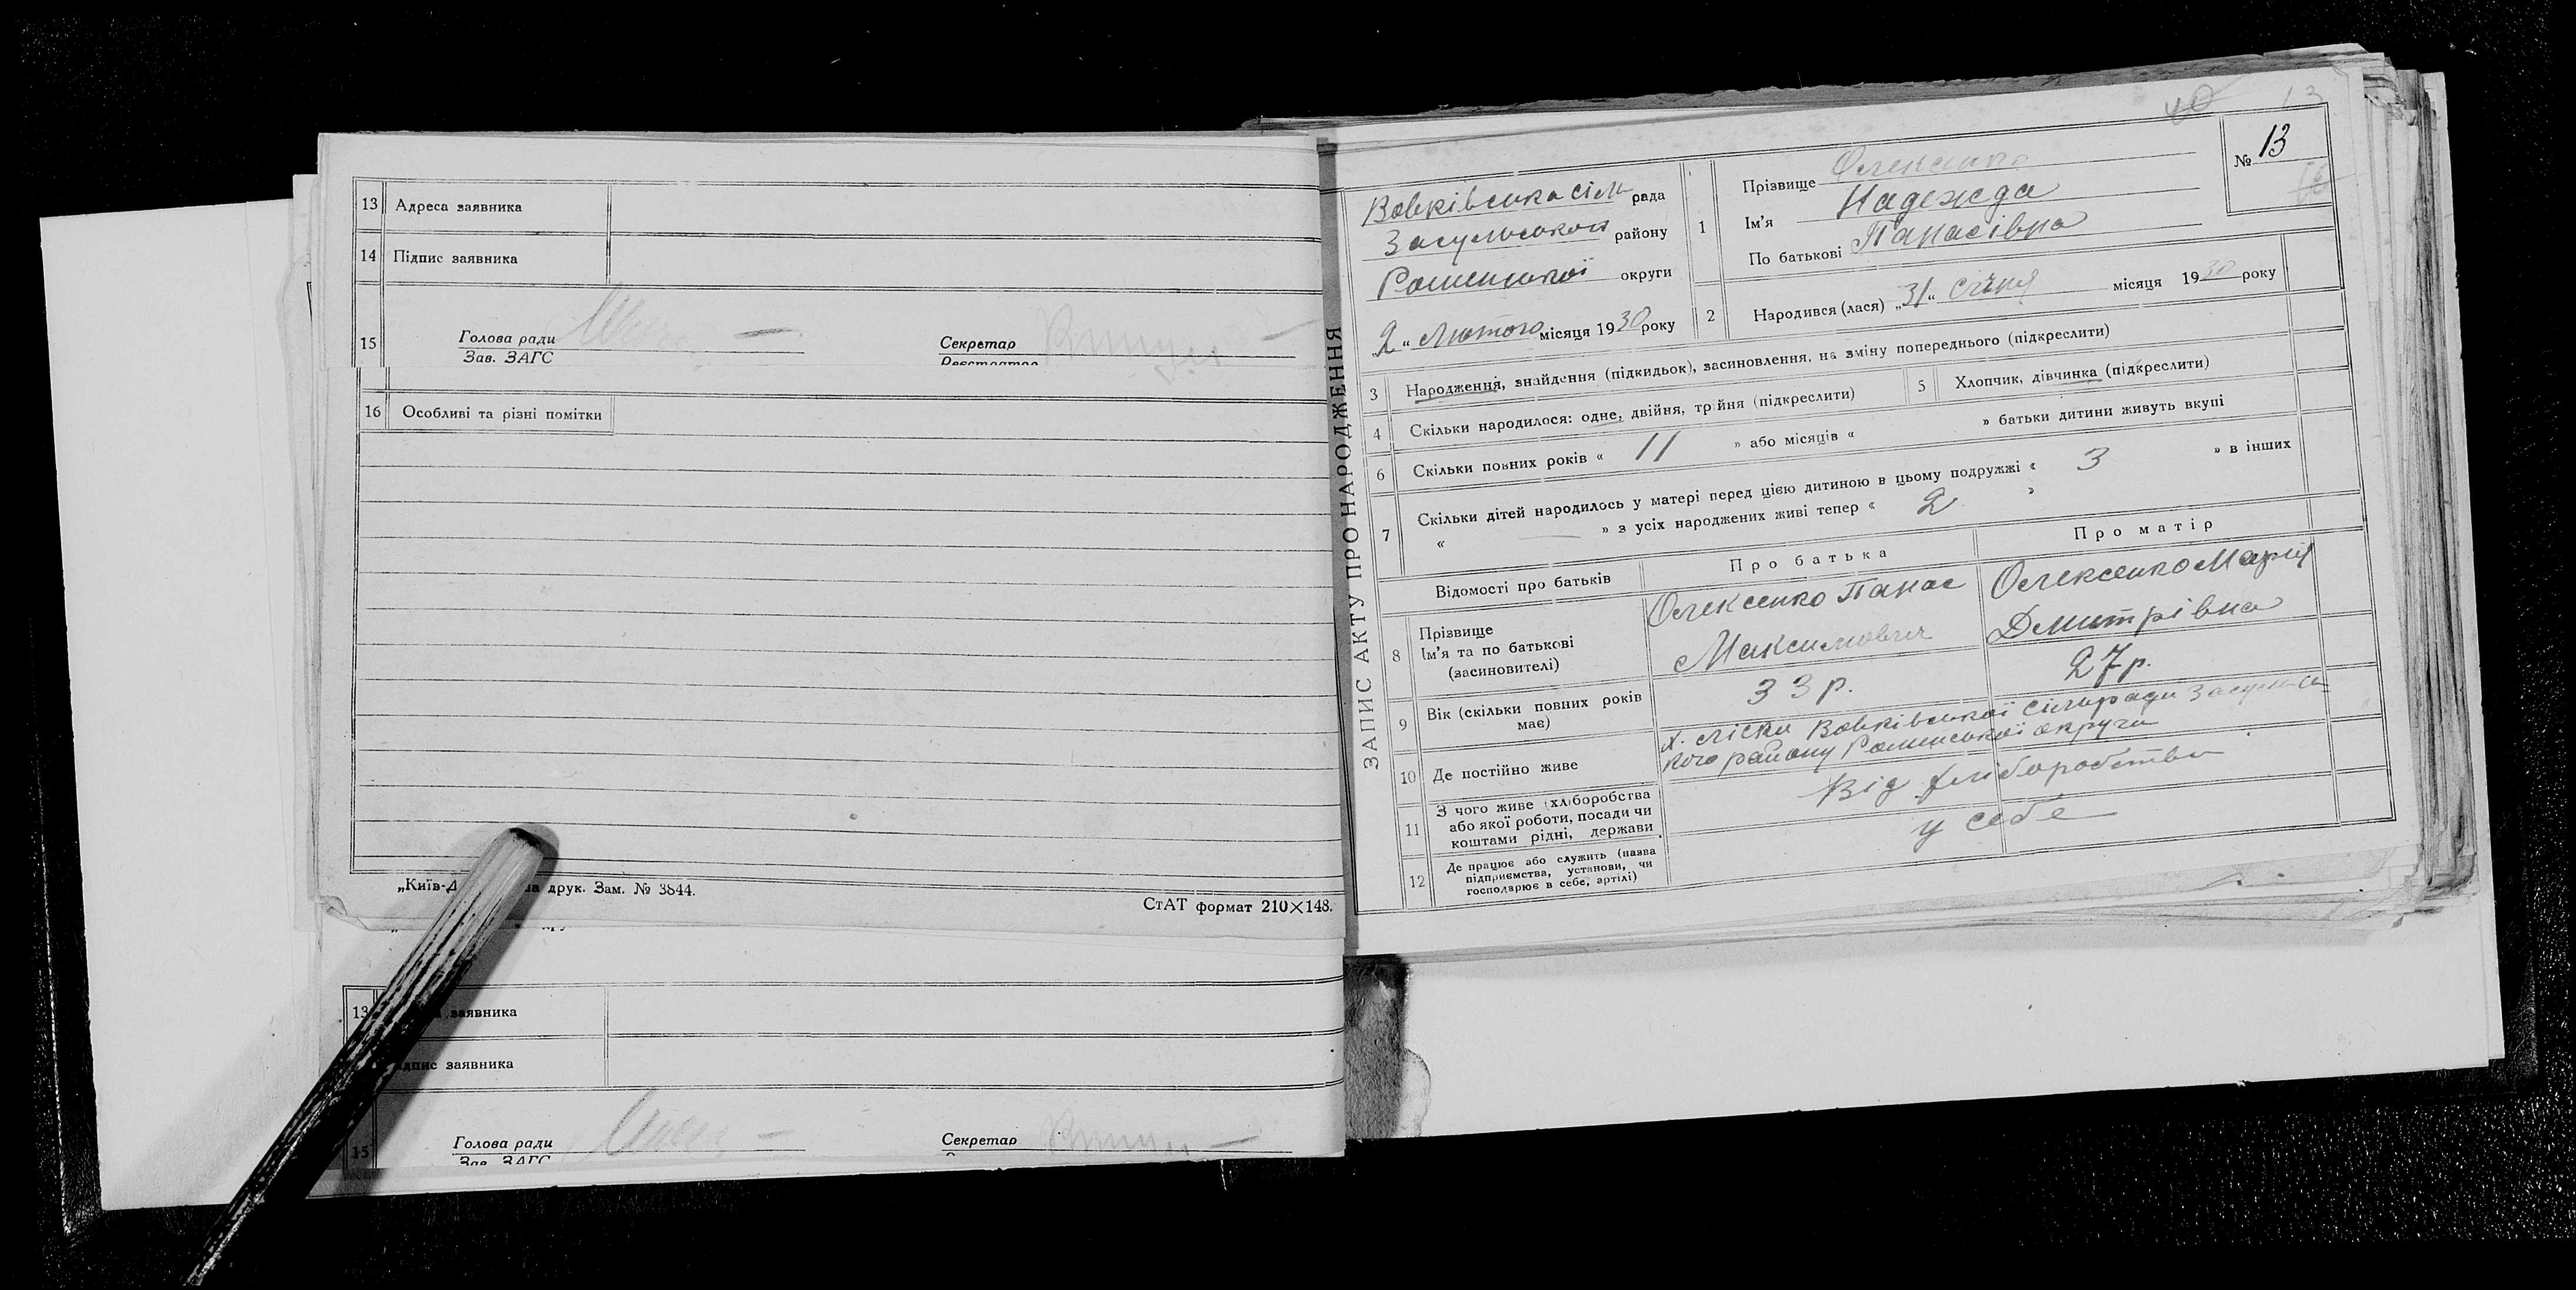 13 Адреса заявника
14 Підпис заявника
15 Голова ради
Зав. ЗАГС
Секретар
Реєстратор
16 Особливі та різні помітки
друк. Зам. № 3844.
СтАТ формат 210×148.
13 заявника
заявника
15 Голова ради
Зав. ЗАГС
Секретар
ЗАПИС АКТУ ПРО НАРОДЖЕННЯ
40 13
№ 13
Вовківська сіль рада
Засульського району
Роменської округи
„2“ Лютого місяця 1930 року
1 Прізвище Олексенко
Ім'я Надежда
По батькові Панасівна
2 Народився (лася) „31“ січня місяця 1930 року
3 Народження, знайдення (підкидьок), засиновлення, на зміну попереднього (підкреслити)
4 Скільки народилося: одне, двійня, трійня (підкреслити) 5 Хлопчик, дівчинка (підкреслити)
6 Скільки повних років « 11 » або місяців « » батьки дитини живуть вкупі
7 Скільки дітей народилось у матері перед цією дитиною в цьому подружжі « 3 » в інших
« — » з усіх народжених живі тепер « 2 »
Відомості про батьків Про батька Про матір
8 Прізвище
Ім'я та по батькові
(засиновителі)
Олексенко Панас
Максимович
Олексенко Марія
Дмитрівна
9 Вік (скільки повних років має) 33 р. 27 р.
10 Де постійно живе
х. Ліски Вовківської сільради Засульсь
кого району Роменської округи
11 З чого живе (хліборобства
або якої роботи, посади чи
коштами рідні, держави
Від хліборобства
12 Де працює або служить (назва
підприємства, установи, чи
господарює в себе, артілі)
у себе